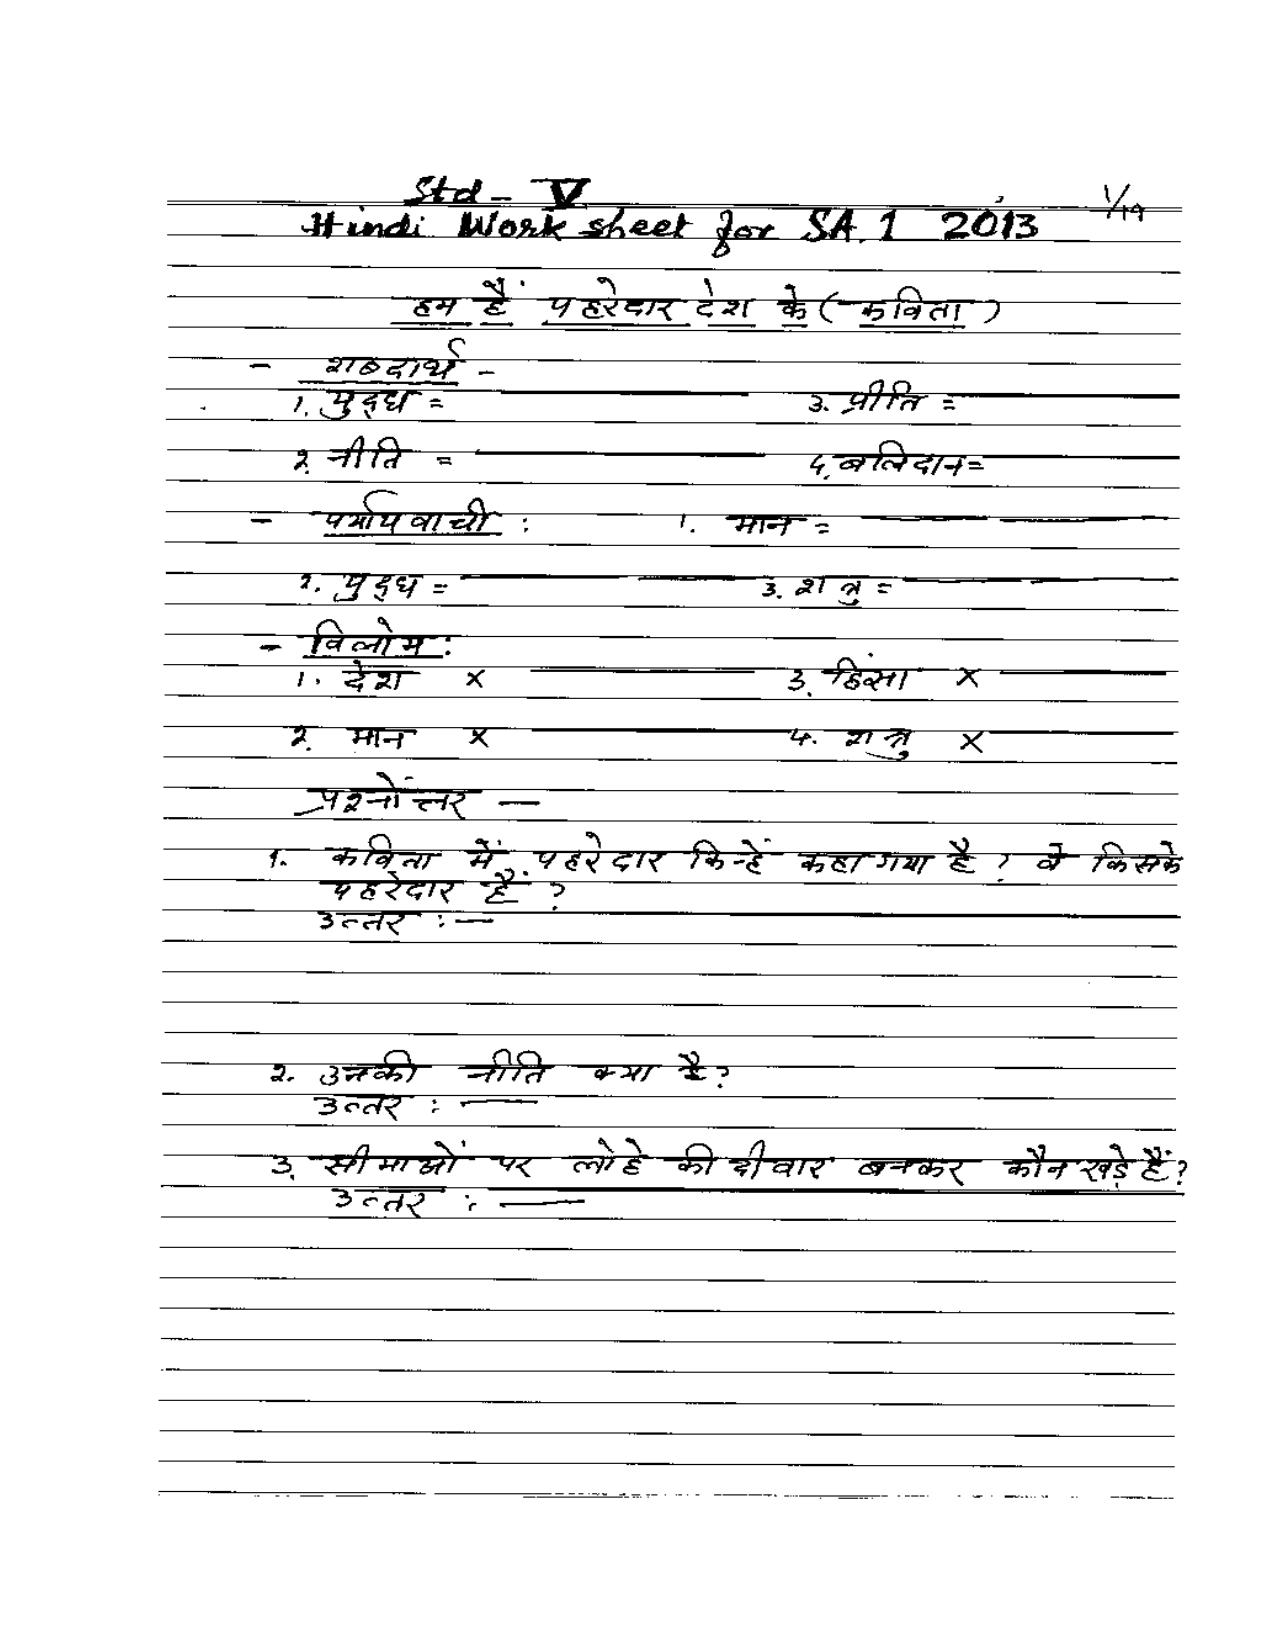 Std - V
1/19
Hindi Work sheet for SA.1 2013
हम हैं पहरेदार देश के (कविता)
- शब्दार्थ -
1. युद्ध = 3. प्रीति =
2. नीति = 4. बलिदान =
- पर्यायवाची : 1. मान =
2. युद्ध = 3. शत्रु =
- विलोम :
1. देश x 3. हिंसा x
2. मान x 4. शत्रु x
प्रश्नोंत्तर —
1. कविता में पहरेदार किन्हें कहा गया है ? वे किसके
पहरेदार हैं ?
उत्तर :—
2. उनकी नीति क्या है ?
उत्तर : —
3. सीमाओं पर लोहे की दीवार बनकर कौन खड़े हैं ?
उत्तर : —